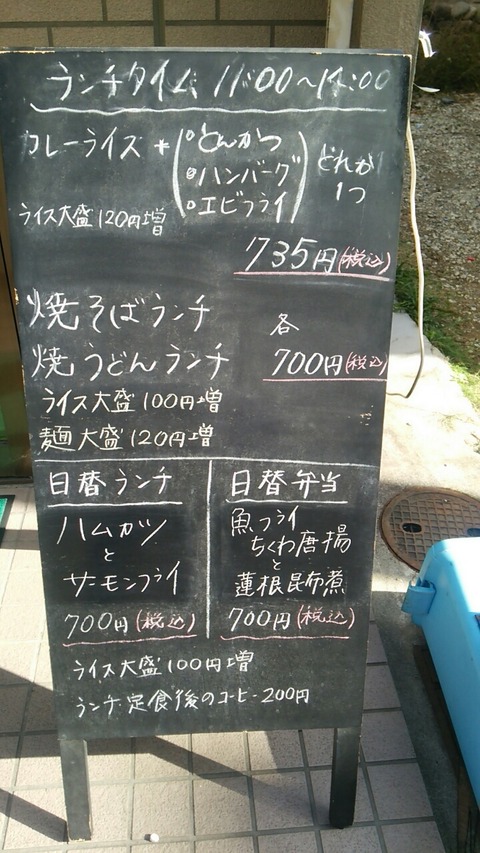 ランチタイム 11:00～14:00
カレーライス + (・とんかつ
・ハンバーグ
・エビフライ)
どれか
1つ
ライス大盛120円増
735円(税込)
焼そばランチ
焼うどんランチ
各
700円(税込)
ライス大盛100円増
麺大盛120円増
日替ランチ
ハムカツ
と
サーモンフライ
700円(税込)
日替弁当
魚フライ
ちくわ唐揚
と
蓮根昆布煮
700円(税込)
ライス大盛100円増
ランチ・定食後のコーヒー200円